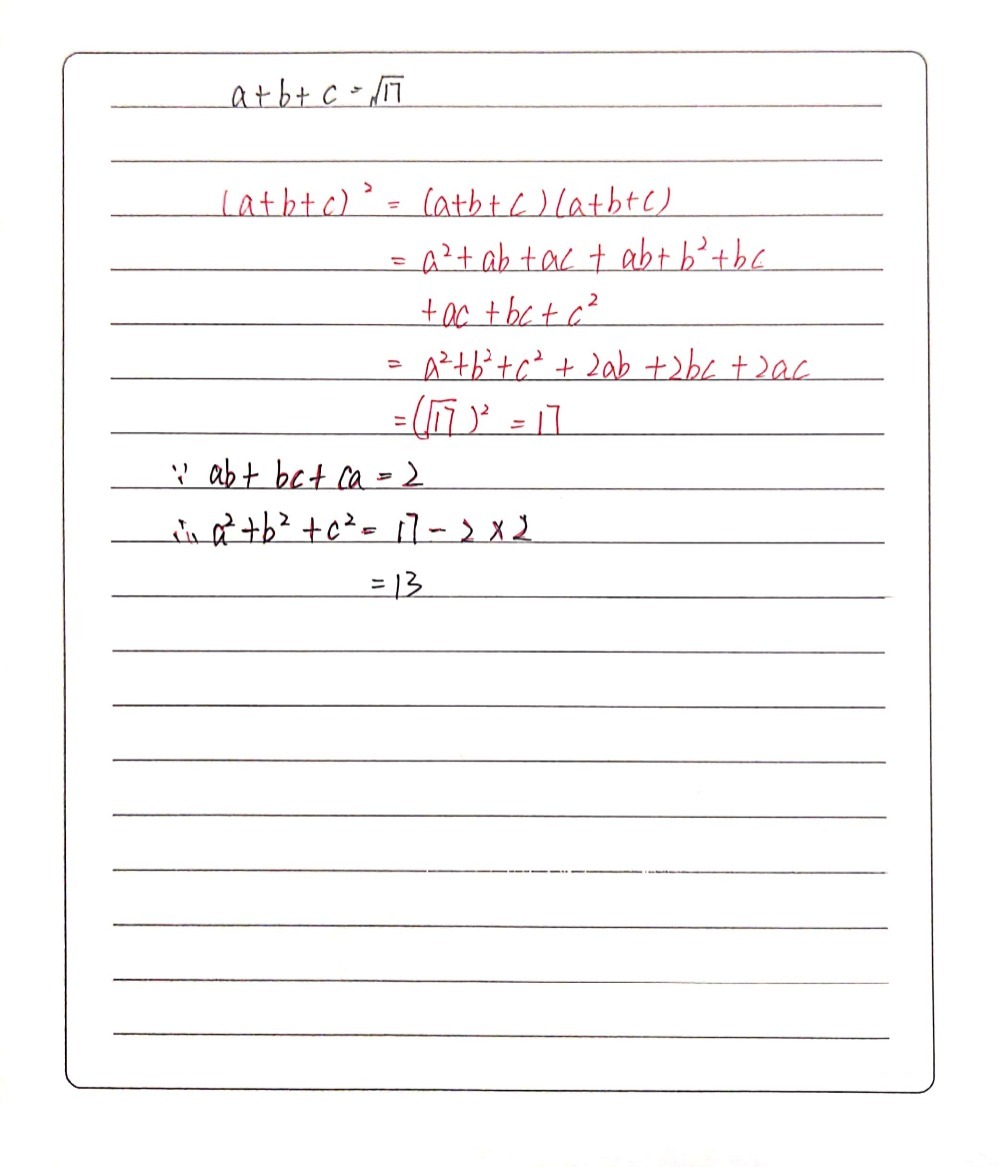 a+b+c=√17
(a+b+c)² = (a+b+c)(a+b+c)
= a²+ab+ac+ab+b²+bc
+ac+bc+c²
= a²+b²+c²+2ab+2bc+2ac
=(√17)² =17
∵ ab+bc+ca=2
∴ a²+b²+c²= 17-2×2
=13